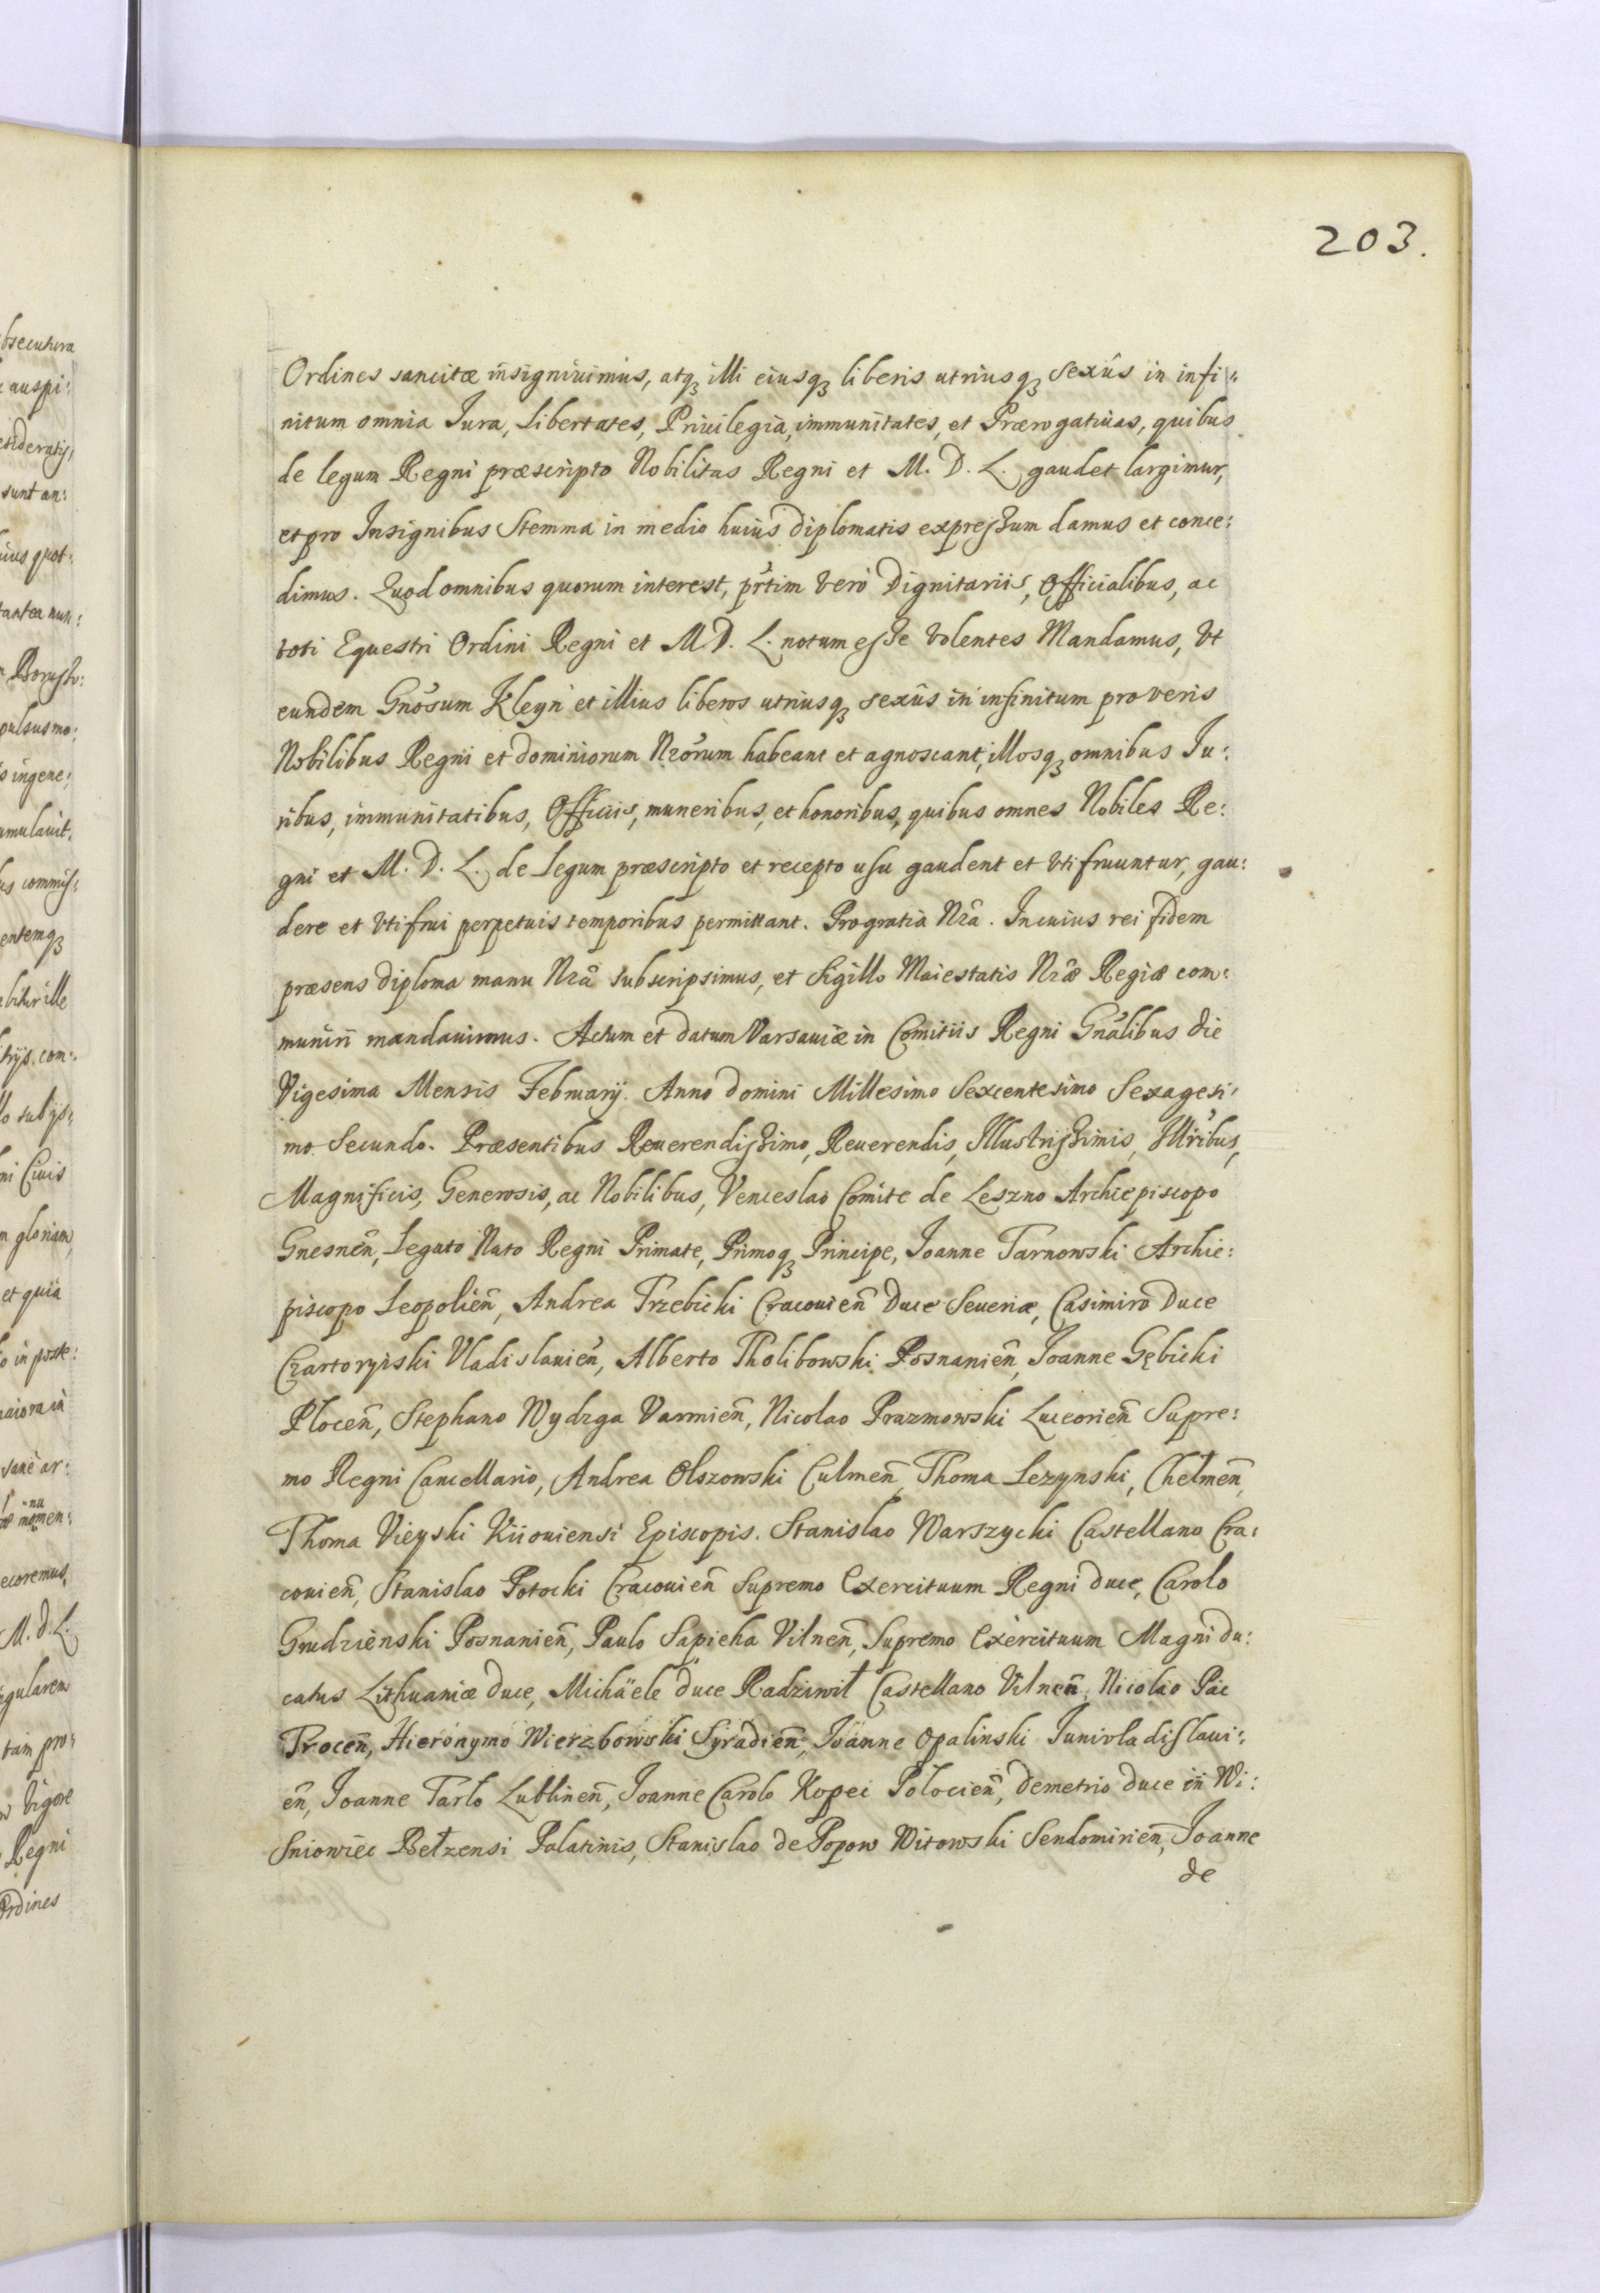 203.
Ordines sancitæ insignivimus, atq₃ illi eiusq₃ liberis utriusq₃ sexûs in infi:
nitum omnia Iura, Libertates, Privilegia, immunitates, et Prærogativas, quibus
de legum Regni præscripto Nobilitas Regni et M. D. L. gaudet largimur,
et pro Insignibus Stemma in medio huius diplomatis expressum damus et conce:
dimus. Quod omnibus quorum interest, prtim vero Dignitariis, Officialibus, ac
toti Equestri Ordini Regni et M. D. L. notum esse volentes Mandamus, Vt
eundem Gnosum Kleyn et illius liberos utriusq₃ sexûs in infinitum pro veris
Nobilibus Regni et dominiorum Nrorum habeant et agnoscant, illosq₃ omnibus Iu:
ribus, immunitatibus, Officiis, muneribus, et honoribus, quibus omnes Nobiles Re:
gni et M. D. L. de Legum præscripto et recepto usu gaudent et Vti fruuntur, gau:
dere et Vti frui perpetuis temporibus permittant. Pro gratia Nrâ. In cuius rei fidem
præsens diploma manu Nrâ subscripsimus, et Sigillo Maiestatis Nræ Regiæ com:
muniri mandavimus. Actum et datum Varsaviæ in Comitiis Regni Gnalibus die
Vigesima Mensis Februarij. Anno Domini Millesimo Sexcentesimo Sexagesi:
mo Secundo. Præsentibus Reuerendissimo, Reuerendis, Illustrissimis, Illribus,
Magnificis, Generosis, ac Nobilibus, Venceslao Comite de Leszno Archiepiscopo
Gnesnen̄, Legato Nato Regni Primate, Primoq₃ Principe, Ioanne Tarnowski Archie:
piscopo Leopolien̄, Andrea Trzebicki Cracovien̄ Duce Severiæ, Casimiro Duce
Czartoryiski Vladislavien̄, Alberto Tholibowski Posnanien̄, Ioanne Gębicki
Plocen̄, Stephano Wydzga Varmien̄, Nicolao Prazmowski Luceorien̄ Supre:
mo Regni Cancellario, Andrea Olszowski Culmen̄, Thoma Lezynski, Chełmen̄,
Thoma Vieyski Kiioviensi Episcopis. Stanislao Warszycki Castellano Cra:
covien̄, Stanislao Potocki Cracovien̄ Supremo Exercituum Regni duce, Carolo
Grudzienski Posnanien̄, Paulo Sapieha Vilnen̄, Supremo Exercituum Magni du:
catus Lithuaniæ duce, Michäele duce Radziwił Castellano Vilnen̄, Nicolao Pac
Trocen̄, Hieronymo Wierzbowski Syradien̄, Ioanne Opalinski Iunivladislavi:
en̄, Ioanne Tarlo Lublinen̄, Ioanne Carolo Kopec Polocien̄, Demetrio duce in Wi:
Sniowiec Bełzensi Palatinis, Stanislao de Popow Witowski Sendomirien̄, Ioanne
de